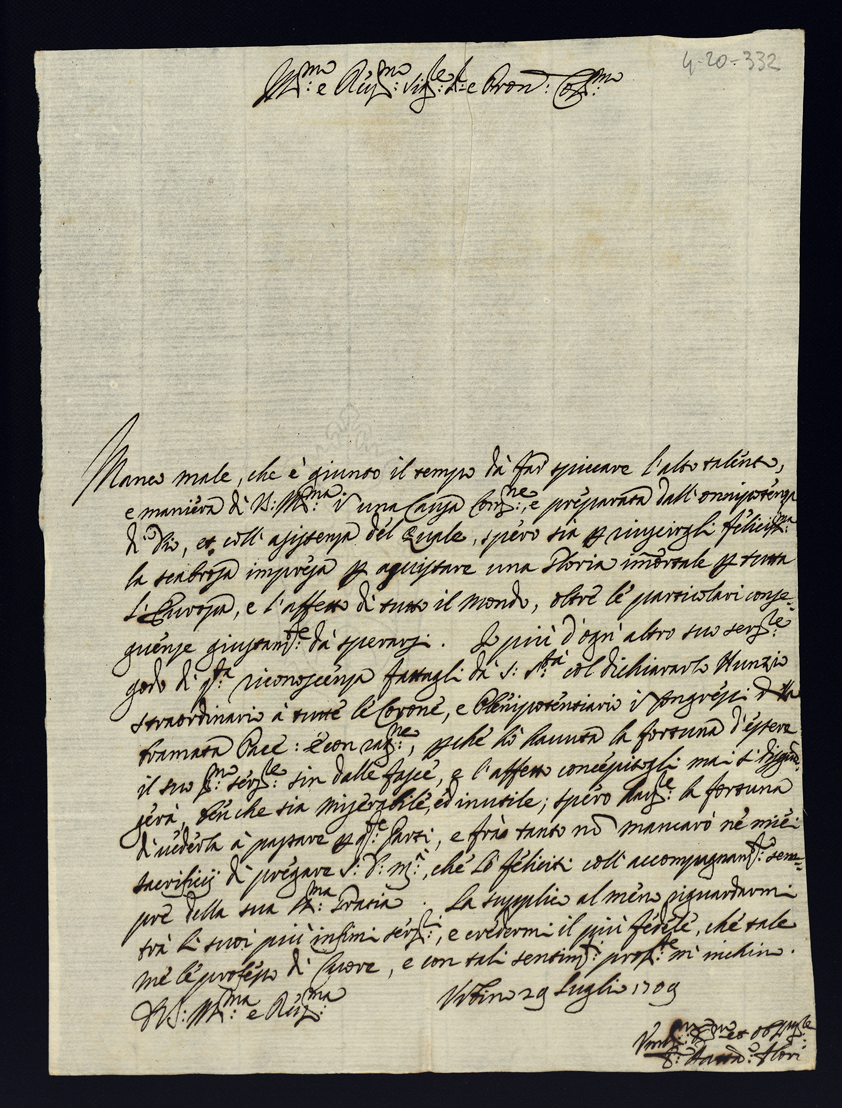 4-20-332
Ill:mo e Rev:mo Sig:re Sig:re e Pron: Col:mo
Manco male, che è giunto il tempo dà far spiccare l'alto talento,
e maniera di V: Ill:ma i una Causa Com:ne, e preparata dall'onnipotenza
di Dio, et coll'assistenza del Quale, spero sia p riuscirgli felicis:ma
la scabrosa impresa p aquistare una Gloria im̃ortale p tutta
l'Europa, e l'affetto di tutto il mondo, oltre le particolari conse=
guenze giustam:te dà sperarsi. Io più d'ogni altro suo ser:re
godo di q:ta riconoscenza fattagli dà S: S:tà col dichiararlo Nunzio
straordinario à tutte le Corone, e Plenipotentiario i Congressi d lla
bramata Pace: è con rag:ne, pche hò havuta la fortuna d'essere
il suo p:mo ser:re sin dalle fasce, e l'affetto concepitogli mai si
gerà, benche sia miserabile, ed inutile; spero la fortuna
di vederla à passare p q:te Parti, e frà tanto nõ mancarò ne miei
sacrificij di pregare S: D: M:tà, che Lo feliciti coll'accompagnam:to sem=
pre della sua S:ma Gratia. La supplico al meno riguardarmi
trà li suoi più infimi ser:ri, e credermi il più fedele, che tale
me le professo di Cuore, e con tali sentim:ti prof:te m'inchino.
Di V: Ill:ma e Rev:ma
Urbino 29 Luglio 1709
Um:mo et Obl:mo